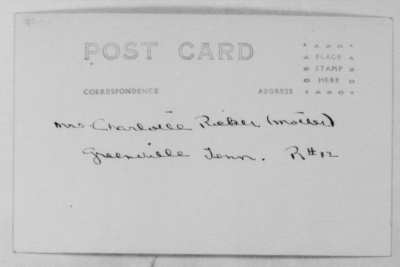 POST CARD
AZO
PLACE
STAMP
HERE
AZO
CORRESPONDENCE
ADDRESS
Mrs. Charlotte Ricker (Mother)
Greenville Tenn. R#12